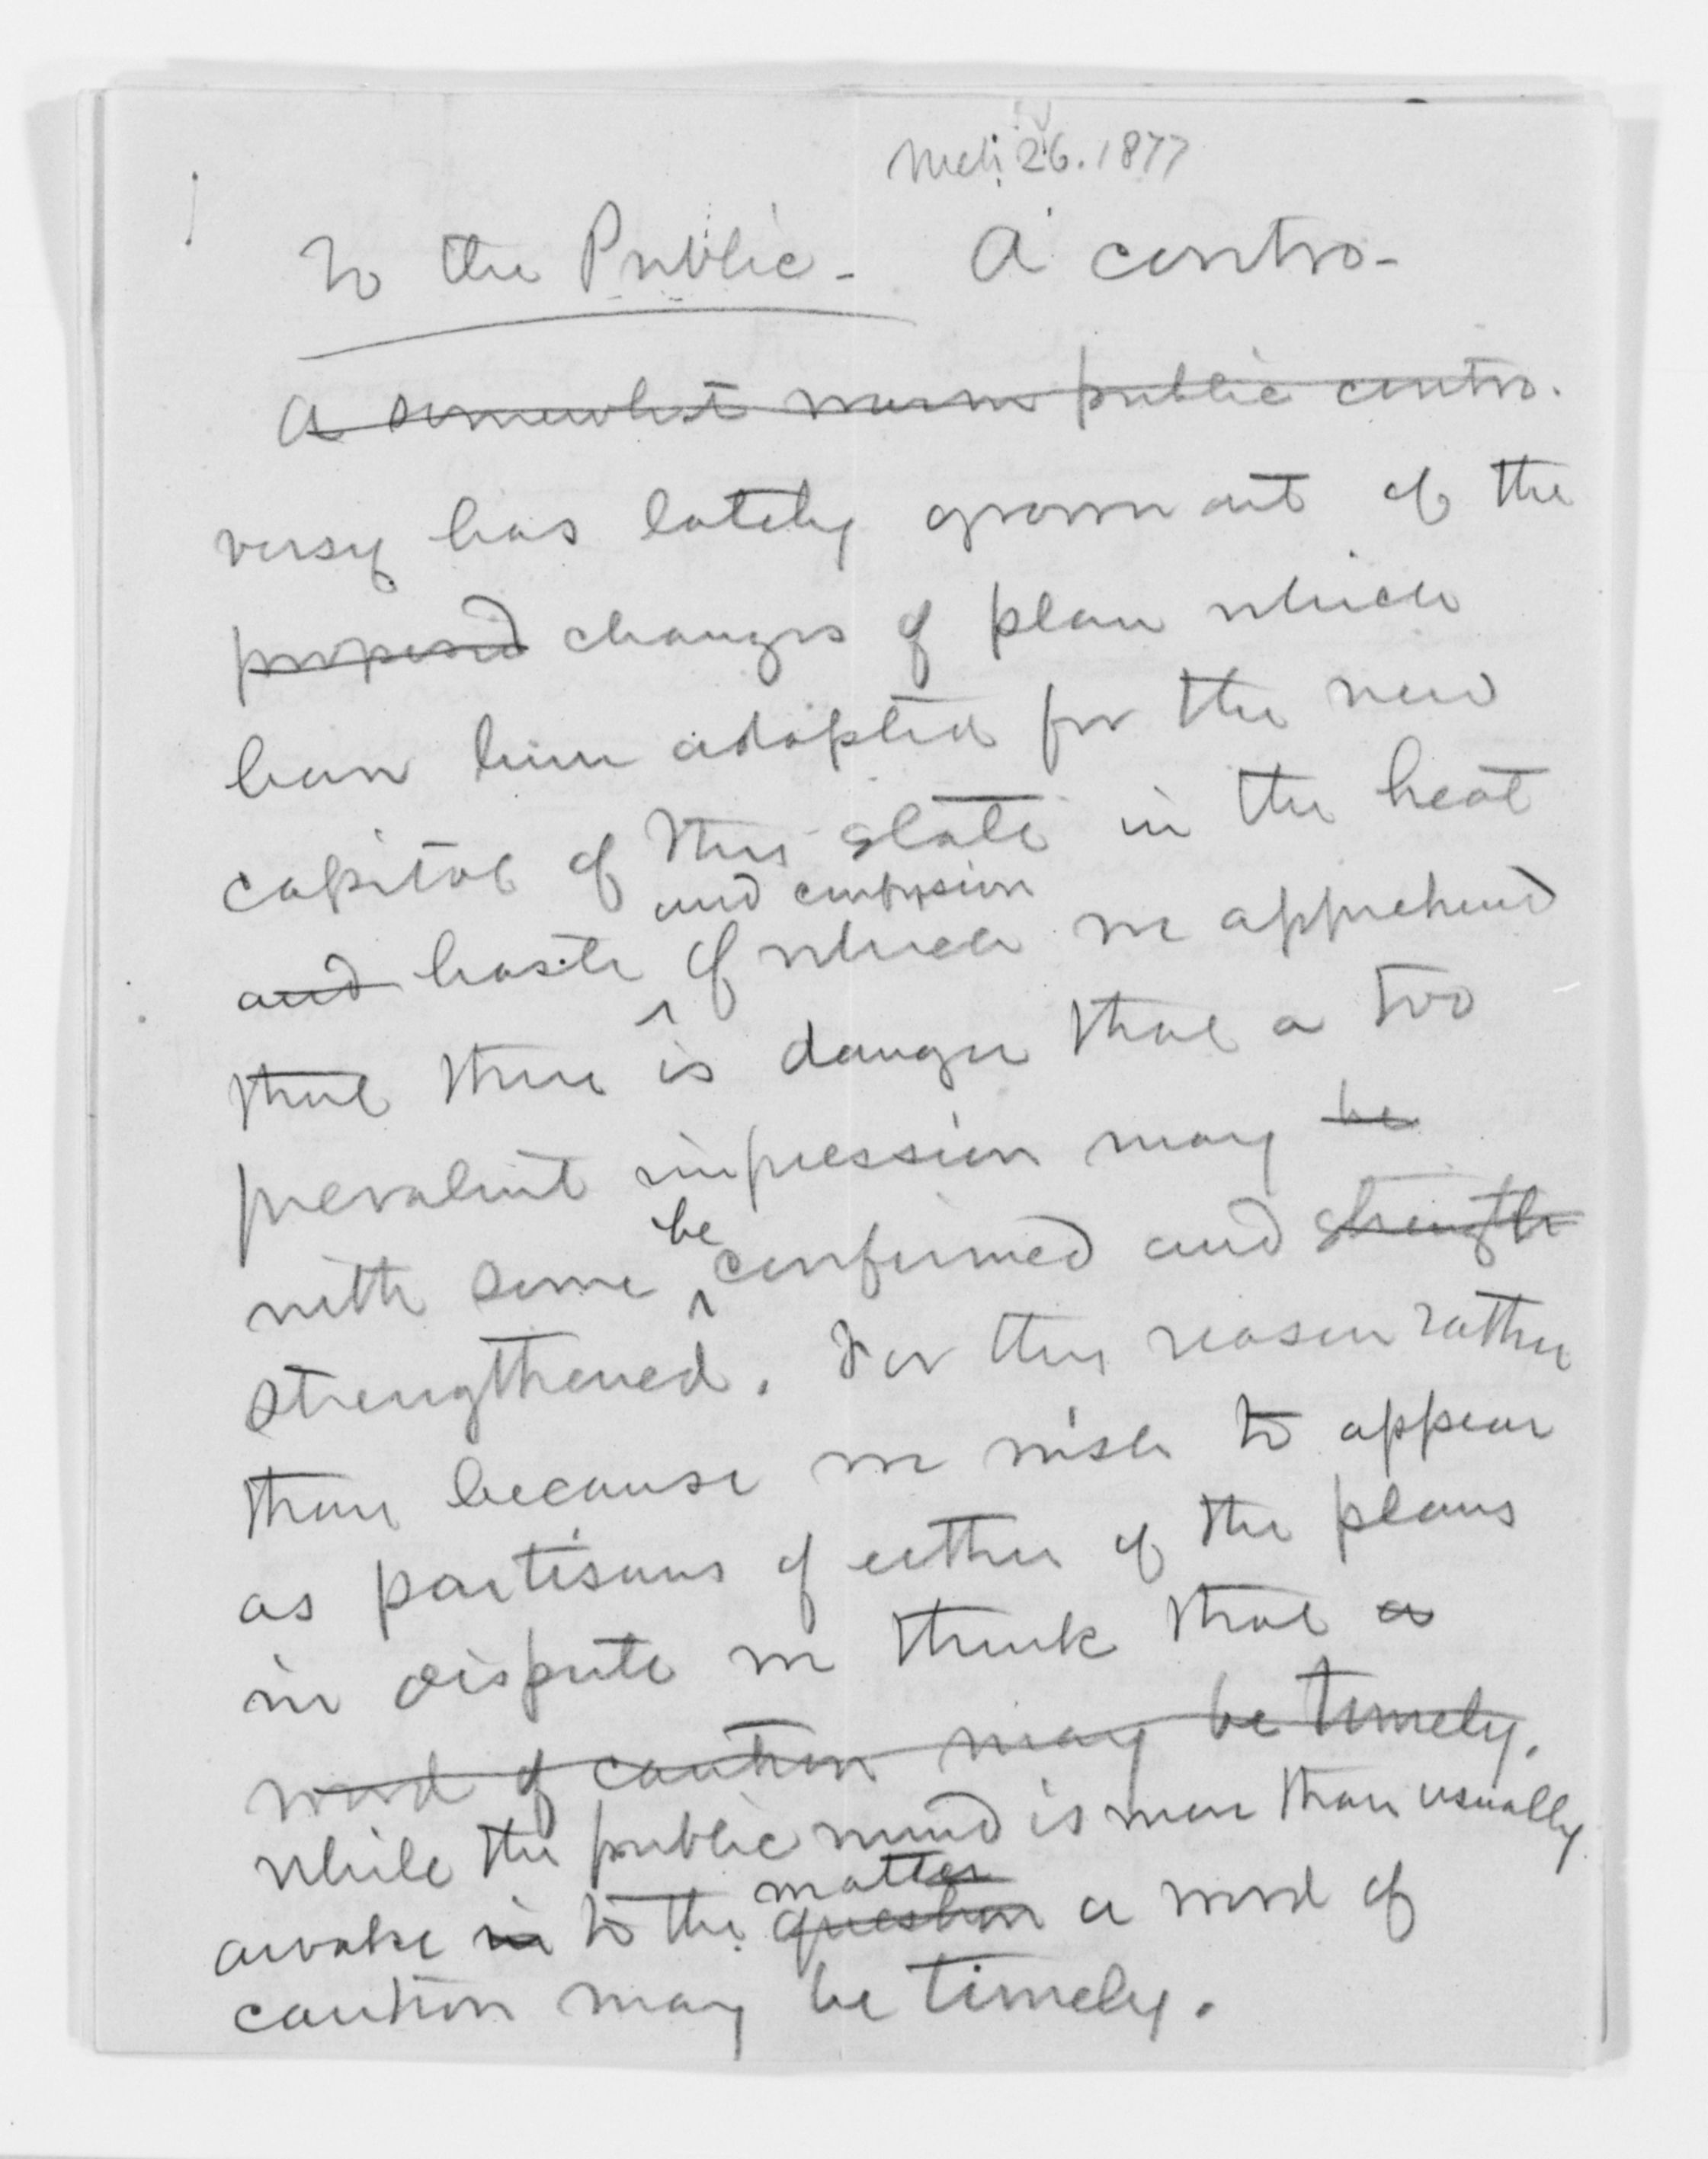 Mch. 26. 1877
To the Public - A contro-
A somewhat warm public contro-
versy has lately grown out of the
proposed changes of plan which
have been adopted for the new
capitol of this state in the heat
and confusion
and haste of which we apprehend
that there is danger that a too
prevalent impression may be
be
with some confirmed and strengthe
strengthened. For this reason rather
than because we wish to appear
as partisans of either of the plans
in dispute we think that a
word of caution may be timely.
while the public mind is more than usually
matter
awake in to the question a word of
caution may be timely.